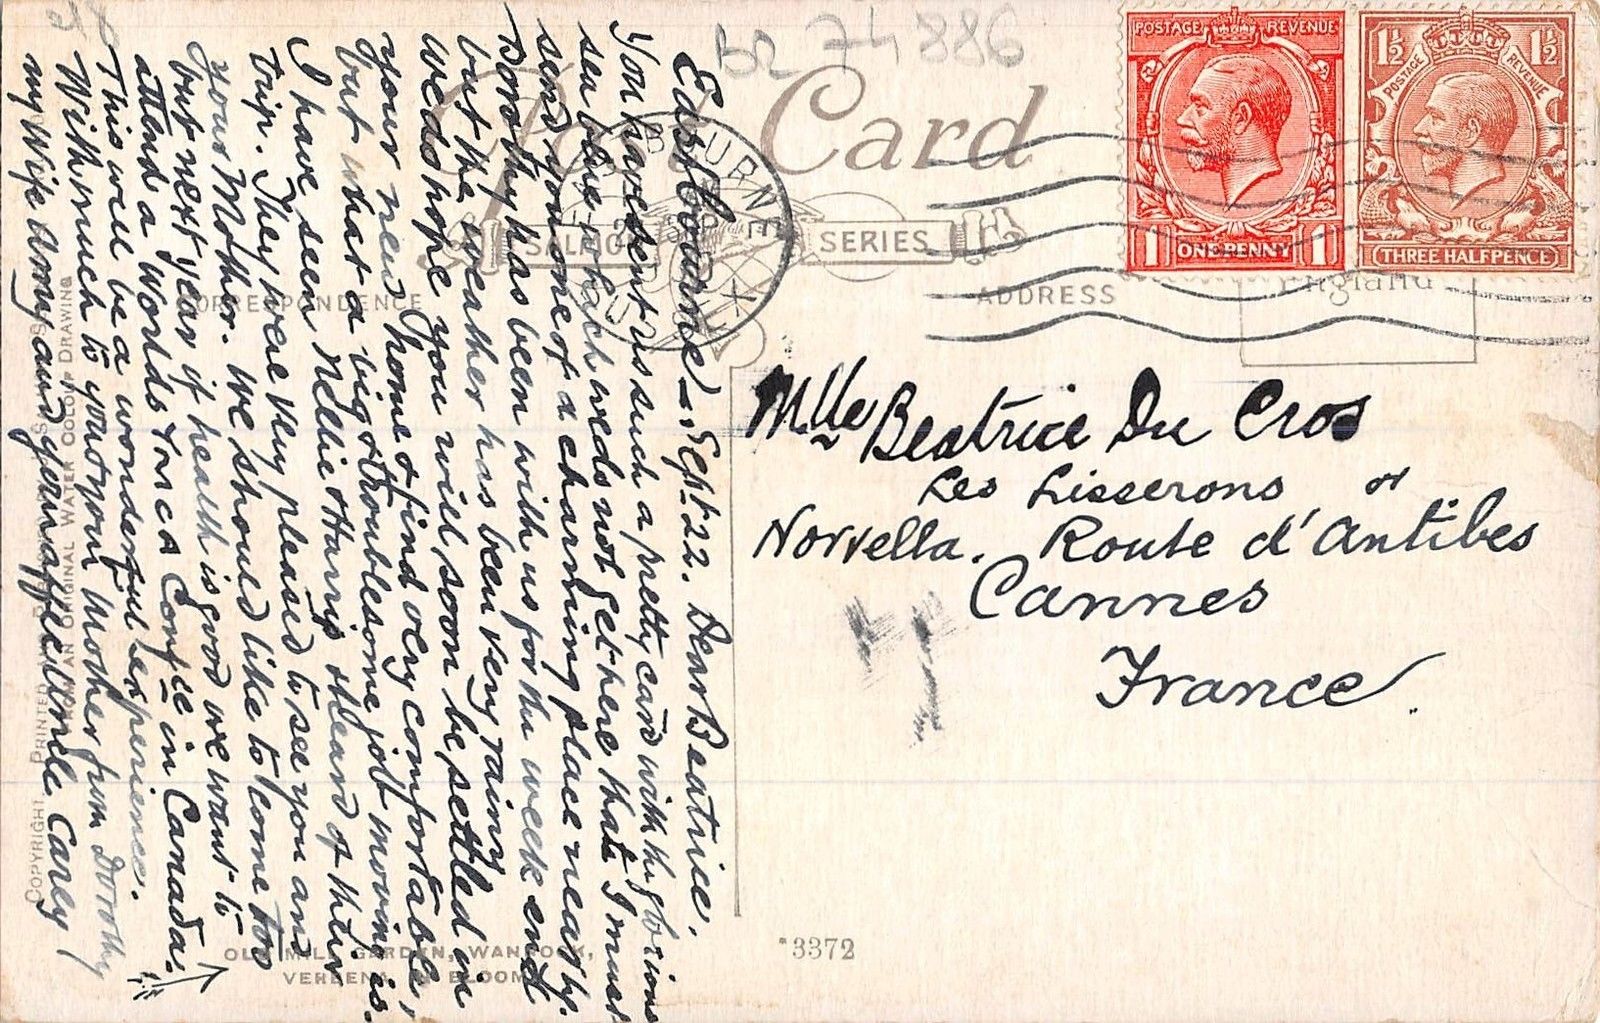 BR 74886
Post Card
SALMON SERIES
CORRESPONDENCE
ADDRESS
POSTAGE REVENUE
1 ONE PENNY 1
1½ 1½
POSTAGE REVENUE
THREE HALFPENCE
England
EASTBOURNE
Eastbourne - Sept 22. Dear Beatrice.
You have sent us such a pretty card with the glorious
sea blue which we do not get here that I must
send you one of a charming place nearby.
Dorothy has been with us for the week end
but the weather has been very rainy
We do hope you will soon be settled in
your new home & find very comfortable,
but what a big & troublesome job moving is.
I have seen Nellie & Harris & heard of their
trip. They were very pleased to see you and
your Mother. We should like to come too
but next year if health is good we want to
attend a World's Conf[ce] in Canada.
This will be a wonderful experience.
With much to you & your Mother from Dorothy
my Wife Amy and your affec Uncle Carey
Mlle Beatrice Du Cros
Les Lisserons or
Norvella. Route d'Antibes
Cannes
France.
COPYRIGHT PRINTED AND
FROM AN ORIGINAL WATER COLOUR DRAWING
OLD MILL GARDEN, WANNOCK,
VERBENA IN BLOOM
*3372